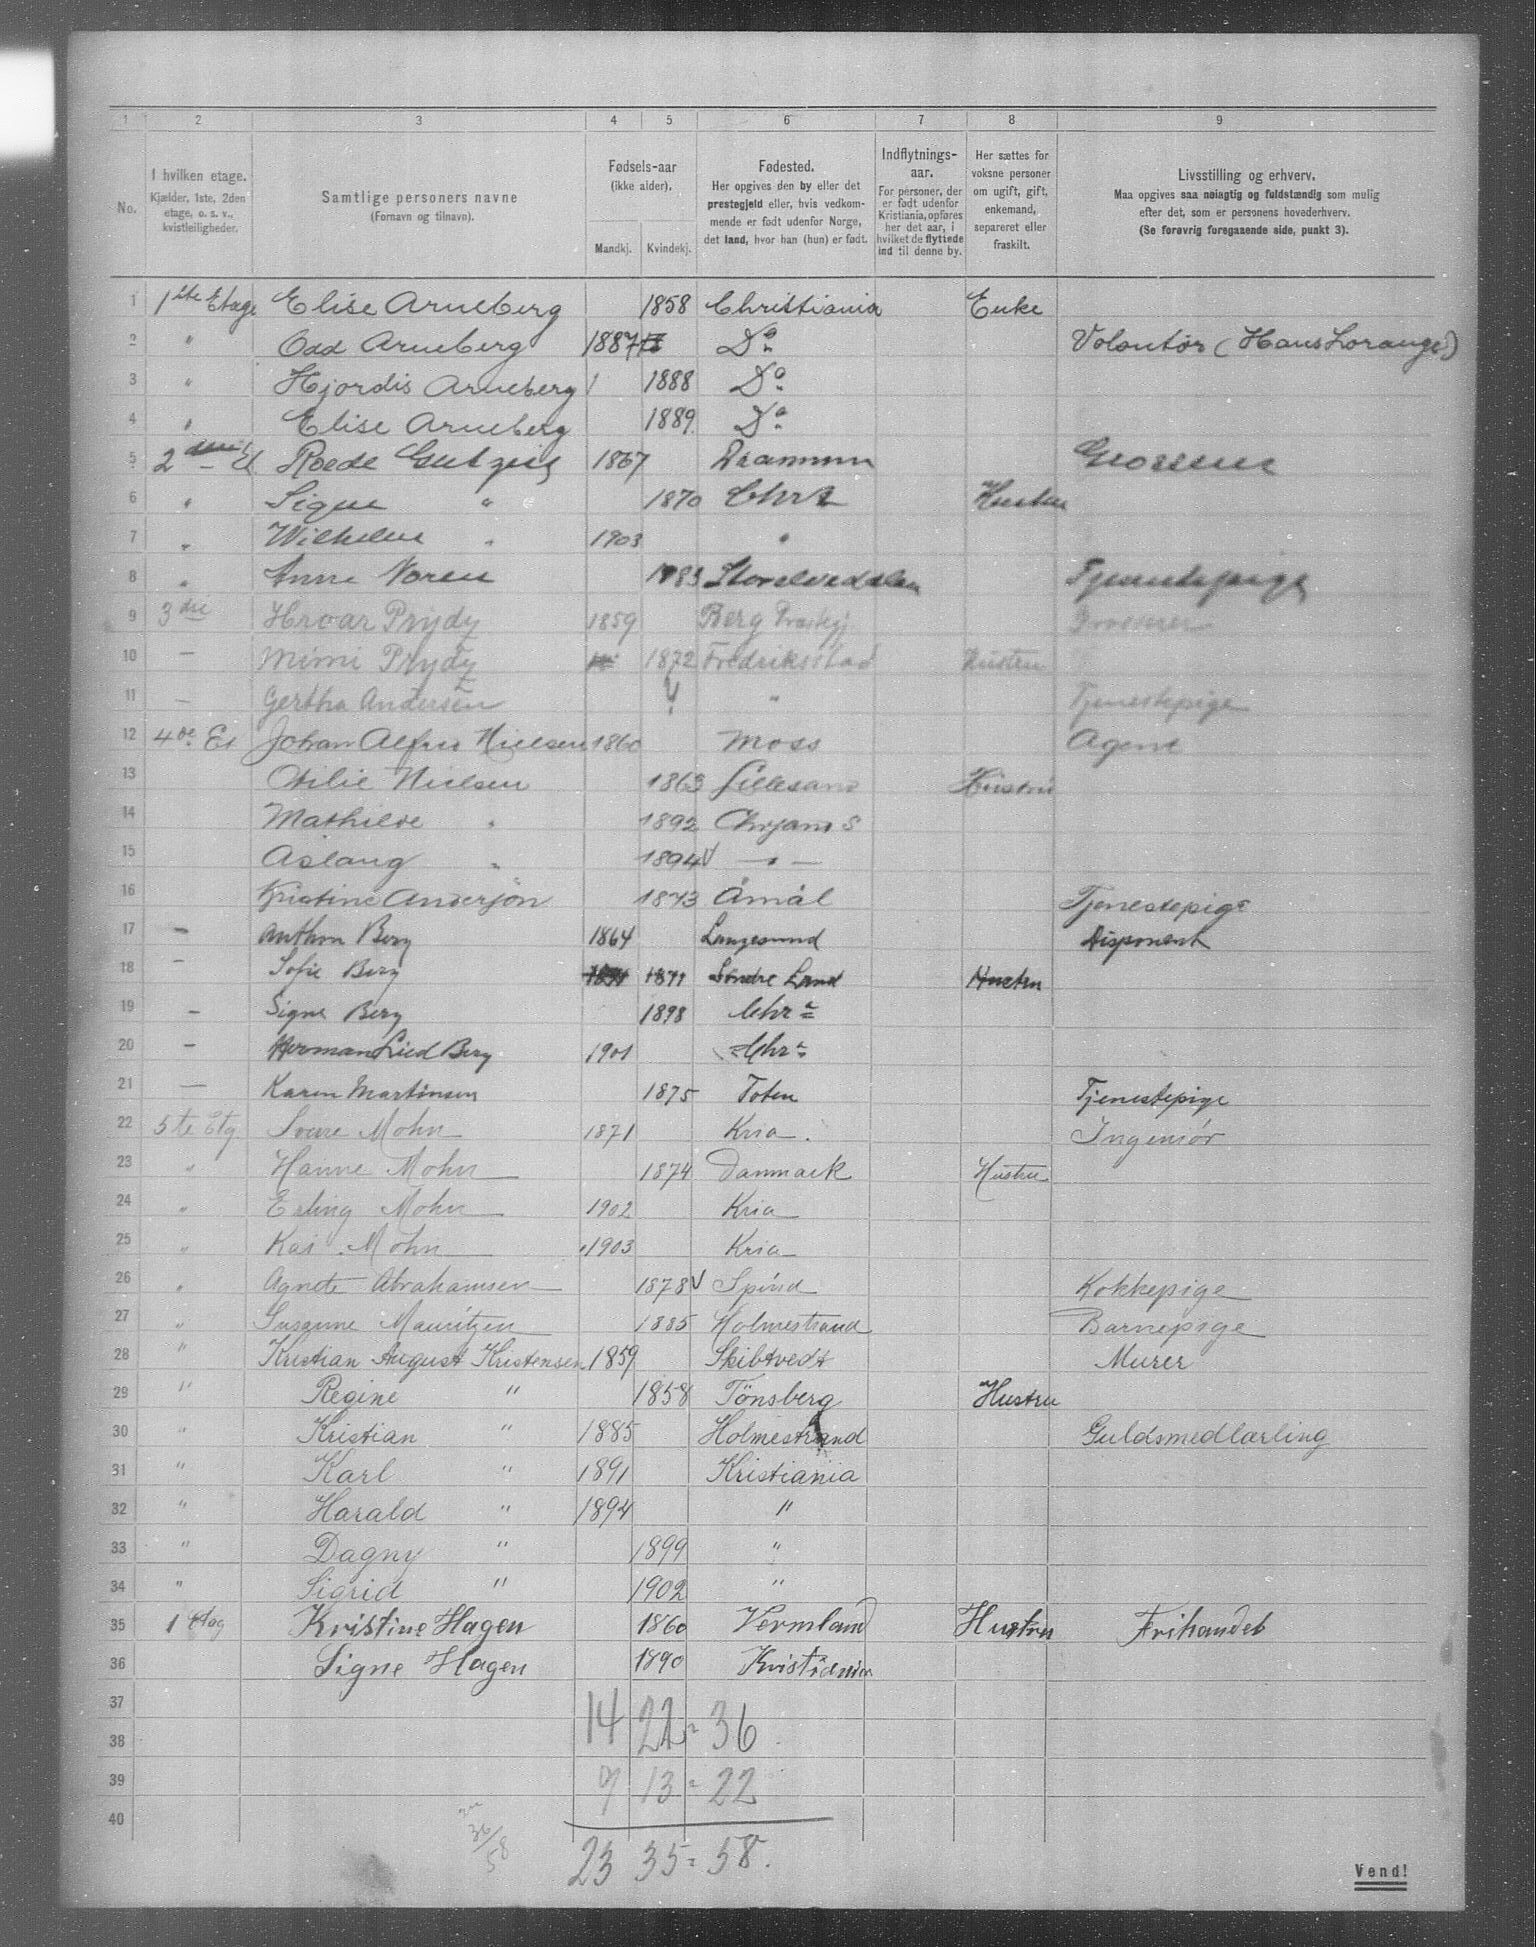 1 2 3 4 5 6 7 8 9
No.
I hvilken etage.
Kjælder, 1ste, 2den
etage, o. s. v.,
kvistleiligheder.
Samtlige personers navne
(Fornavn og tilnavn).
Fødsels-aar
(ikke alder).
Mandkj. Kvindekj.
Fødested.
Her opgives den by eller det
prestegjeld eller, hvis vedkom-
mende er født udenfor Norge,
det land, hvor han (hun) er født.
Indflytnings-
aar.
For personer, der
er født udenfor
Kristiania, opføres
her det aar, i
hvilket de flyttede
ind til denne by.
Her sættes for
voksne personer
om ugift, gift,
enkemand,
separeret eller
fraskilt.
Livsstilling og erhverv.
Maa opgives saa nøiagtig og fuldstændig som mulig
efter det, som er personens hovederhverv.
(Se forøvrig foregaaende side, punkt 3).
1 1ste Etage Elise Arneberg 1858 Christiania Enke
2 " Odd Arneberg 1887 Do Volontør (Hans Lorange)
3 " Hjordis Arneberg 1888 Do
4 " Elise Arneberg 1889 Do
5 2 Et Roede 1867 Drammen Grosserer
6 " Signe " 1870 Chra Hustru
7 " Wilhelm " 1903 "
8 " Anne Noren 1883 Tjenestepige
9 3die Hroar Prydz 1859 Berg Præstgj Grosserer
10 — Mimi Prydz 1872 Fredriksstad Hustru
11 — Gertha Andersen ? " Tjenestepige
12 4de Et Johan Alfred Nielsen 1860 Moss Agent
13 Otilie Nielsen 1863 Lillesand Hustru
14 Mathilde " 1892 Chrjania S
15 Aslaug " 1894 V — " —
16 Kristine Anderson 1873 Åmål Tjenestepige
17 — Anthon Berg 1864 Langesund Disponent
18 — Sofie Berg 1871 Søndre Land Hustru
19 — Signe Berg 1898 Chra
20 — Herman Lied Berg 1901 Chra
21 — Karen Martinsen 1875 Toten Tjenestepige
22 5te Etg. Sverre Mohn 1871 Kria. Ingeniør
23 " Hanne Mohn 1874 Danmark Hustru
24 " Erling Mohn 1902 Kria
25 " Kai Mohn 1903 Kria
26 " Agnete Abrahamsen 1878 V Spind Kokkepige
27 " Susanne Mauritzen 1885 Holmestrand Barnepige
28 " Kristian August Kristensen 1859 Skibtvedt Murer
29 " Regine " 1858 Tönsberg Hustru
30 " Kristian " 1885 Holmestrand Guldsmedlærling
31 " Karl " 1891 Kristiania
32 " Harald " 1894 "
33 " Dagny " 1899 "
34 " Sigrid " 1902 "
35 1 etag Kristine Hagen 1860 Vermland Hustru Frihandel
36 Signe Hagen 1890 Kristiania
37
38 14 22 = 36
39 9 13 = 22
40
36/58
23 35 = 58.
Vend!